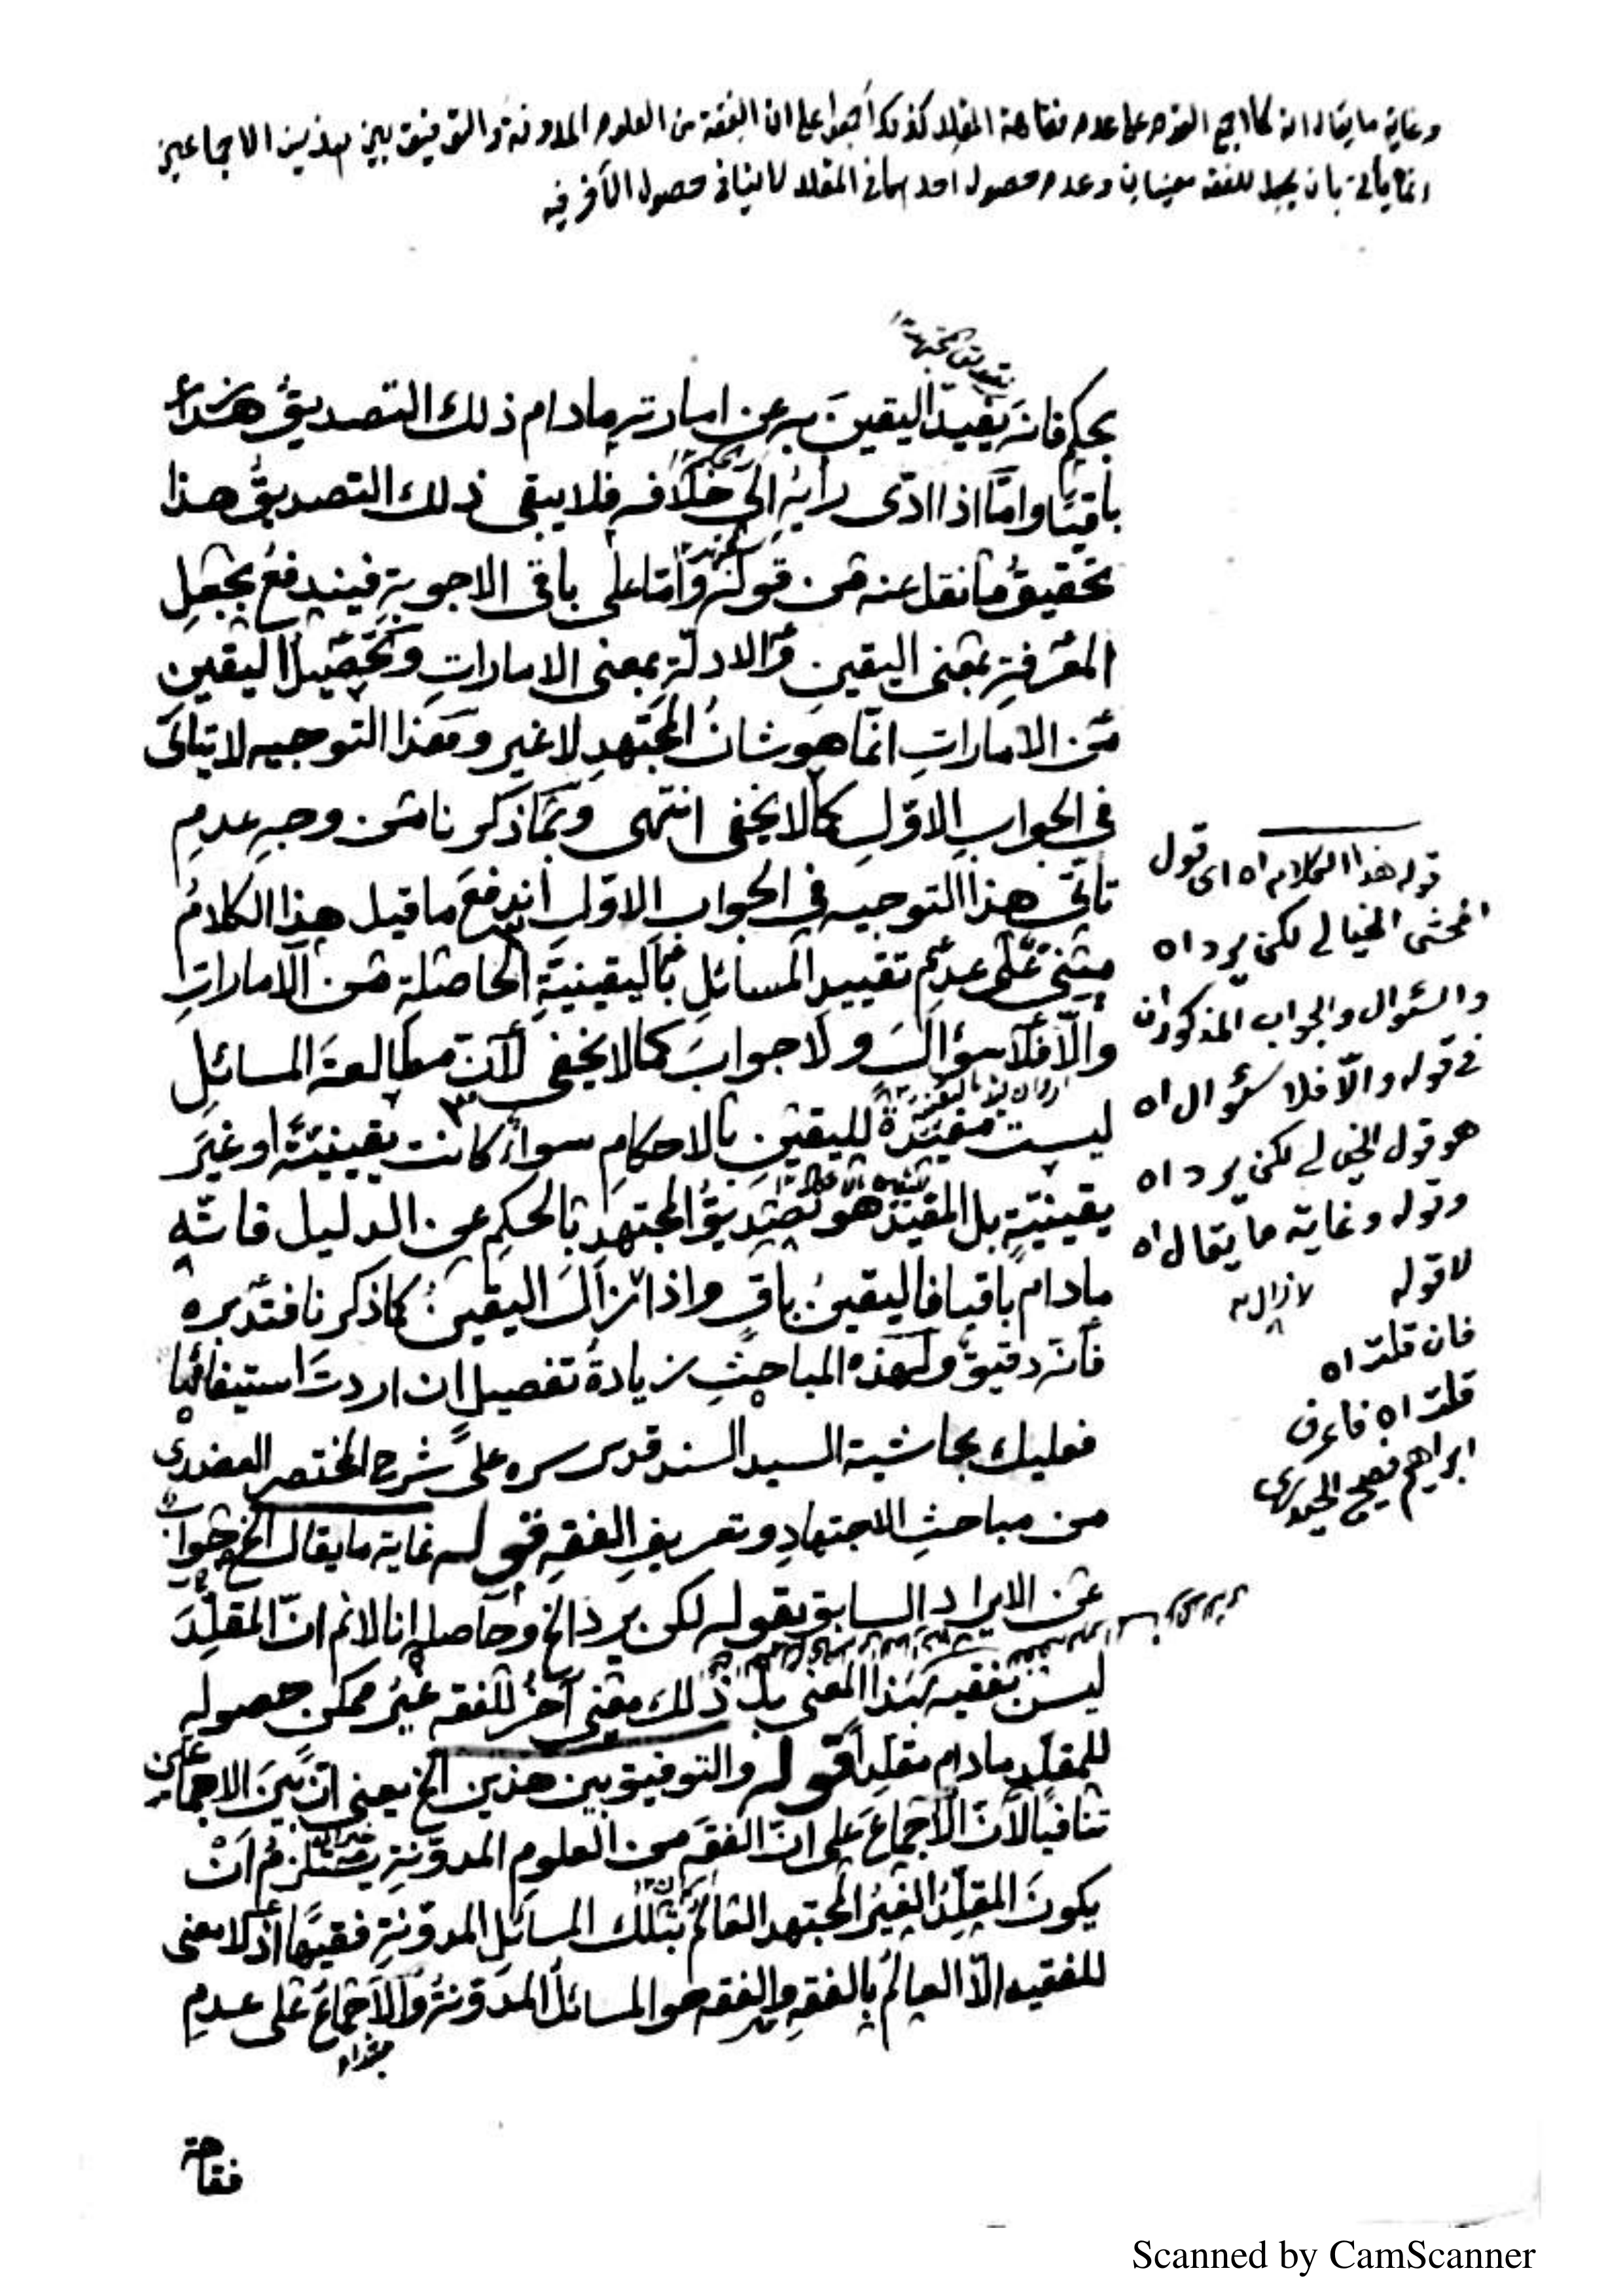 وغاية ما يقال انه كما اجمع القوم على عدم فقاهة المقلد كذلك اجمعوا على ان الفقه من العلوم المدونة والتوفيق بين هذين الاجماعين
انما يتأتى بان يجعل للفقه معنيان وعدم حصول احدهما في المقلد لا ينافي حصول الآخر فيه
بحكم فانه يفيد اليقين به عن امارته مادام ذلك التصديق
باقيا واما اذا ادّى رأيه الى خلافه فلا يبقى ذلك التصديق هذا
تحقيق ما نقل عنه من قوله واما على باقي الاجوبة فيندفع بجعل
المعرفة بمعنى اليقين والادلة بمعنى الامارات وتحصيل اليقين
من الامارات انّما هو شان المجتهد لا غير وهذا التوجيه لا يتأتى
في الجواب الاوّل كما لا يخفى انتهى وبما ذكرنا من وجه عدم
تأتّي هذا التوجيه في الجواب الاوّل اندفع ما قيل هذا الكلام
مبنيّ على عدم تقييد المسائل باليقينية الحاصلة من الامارات
والّا فلا سؤال ولا جواب كما لا يخفى لأن مطالعة المسائل
ليست مفيدة لليقين بالاحكام سواء كانت يقينيّة او غير
يقينيّة بل المفيد هو تصديق المجتهد بالحكم عن الدليل فانّه
مادام باقيا فاليقين باق واذا زال زال اليقين كما ذكرنا فتدبره
فانه دقيق ولهذه المباحث زيادة تفصيل ان اردت استيفائها
فعليك بحاشية السيد السند قدس سره على شرح المختصر العضدي
من مباحث الاجتهاد وتعريف الفقه قوله غاية ما يقال الخ جواب
عن الايراد السابق بقوله لكن يرد الخ وحاصله انا لانم انّ المقلّد
ليس بفقيه بهذا المعنى بل ذلك معنى آخر للفقه غير ممكن حصوله
للمقلّد مادام مقلّدا قوله والتوفيق بين هذين الخ يعنى انّ بين الاجماعين
تنافيا لأنّ الاجماع على انّ الفقه من العلوم المدوّنة يستلزم أنْ
يكون المقلّد الغير المجتهد العالم بتلك المسائل المدوّنة فقيهًا اذ لا معنى
للفقيه الّا العالم بالفقه والفقه هو المسائل المدوّنة والاجماع على عدم
مبتداء
فقاهة
قوله هذا الكلام اه اى قول
المحشى الخيالي لكن يرد اه
والسؤال والجواب المذكوران
في قوله والّا فلا سؤال اه
هو قول الخيالي لكن يرد اه
وقوله وغاية ما يقال اه
لا قوله
فان قلت اه
قلت اه فاعرف
ابراهيم فصيح الحيدري
Scanned by CamScanner